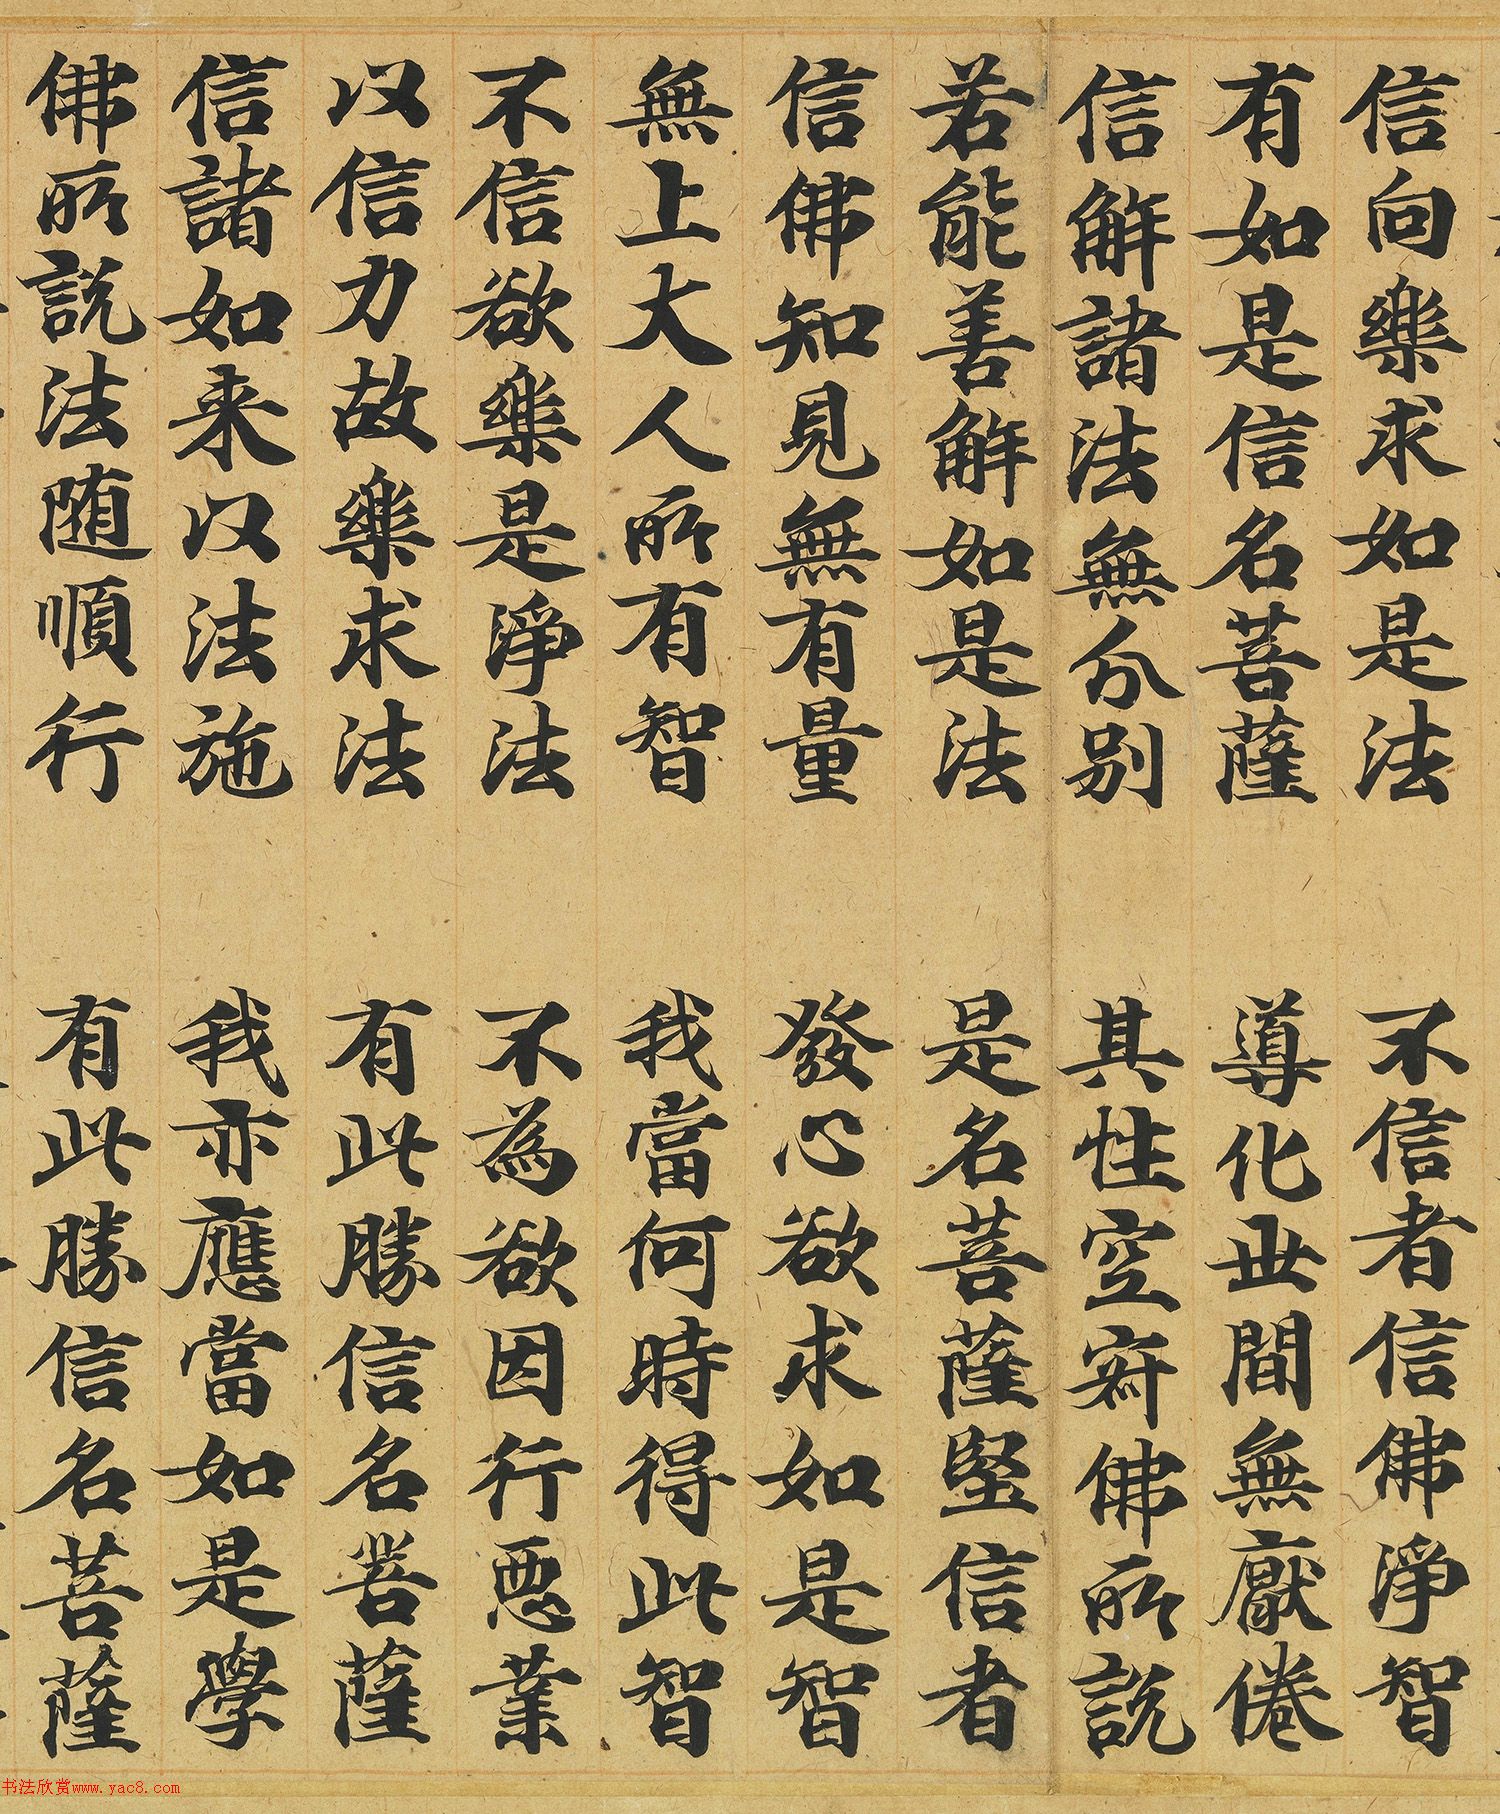 信向樂求如是法　不信者信佛淨智
有如是信名菩薩　導化世間無厭倦
信解諸法無分別　其性空寂佛所說
若能善解如是法　是名菩薩堅信者
信佛知見無有量　發心欲求如是智
無上大人所有智　我當何時得此智
不信欲樂是淨法　不為欲因行惡業
以信力故樂求法　有此勝信名菩薩
信諸如来以法施　我亦應當如是學
佛所說法随順行　有此勝信名菩薩
书法欣赏www.yac8.com